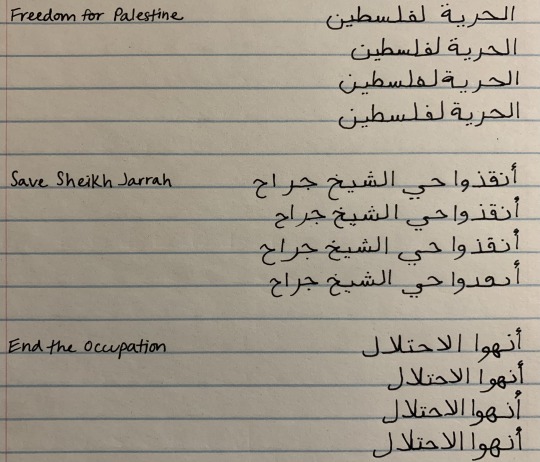 Freedom for Palestine الحرية لفلسطين
الحرية لفلسطين
الحرية لفلسطين
الحرية لفلسطين
Save Sheikh Jarrah أنقذوا حي الشيخ جراح
أنقذوا حي الشيخ جراح
أنقذوا حي الشيخ جراح
أنعدوا حي الشيخ جراح
End the Occupation أنهوا الاحتلال
أنهوا الاحتلال
أنهوا الاحتلال
أنهوا الاحتلال